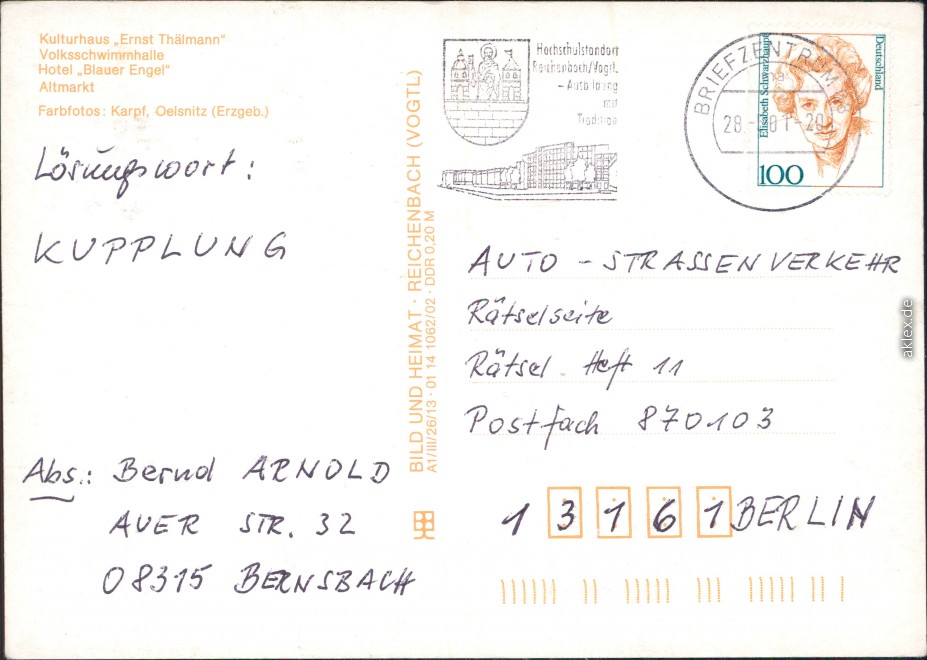 Kulturhaus „Ernst Thälmann“
Volksschwimmhalle
Hotel „Blauer Engel“
Altmarkt
Farbfotos: Karpf, Oelsnitz (Erzgeb.)
Lösungswort:
KUPPLUNG
Abs.: Bernd ARNOLD
AUER STR. 32
08315 BERNSBACH
BILD UND HEIMAT · REICHENBACH (VOGTL)
A1/III/26/13 · 01 14 1062/02 · DDR 0,20 M
Hochschulstandort
Reichenbach/Vogtl.
– Ausbildung
mit
Tradition
BRIEFZENTRUM
28.
Deutschland
Elisabeth Schwarzhaupt
100
AUTO - STRASSENVERKEHR
Rätselseite
Rätsel Heft 11
Postfach 870103
13161 BERLIN
aklex.de